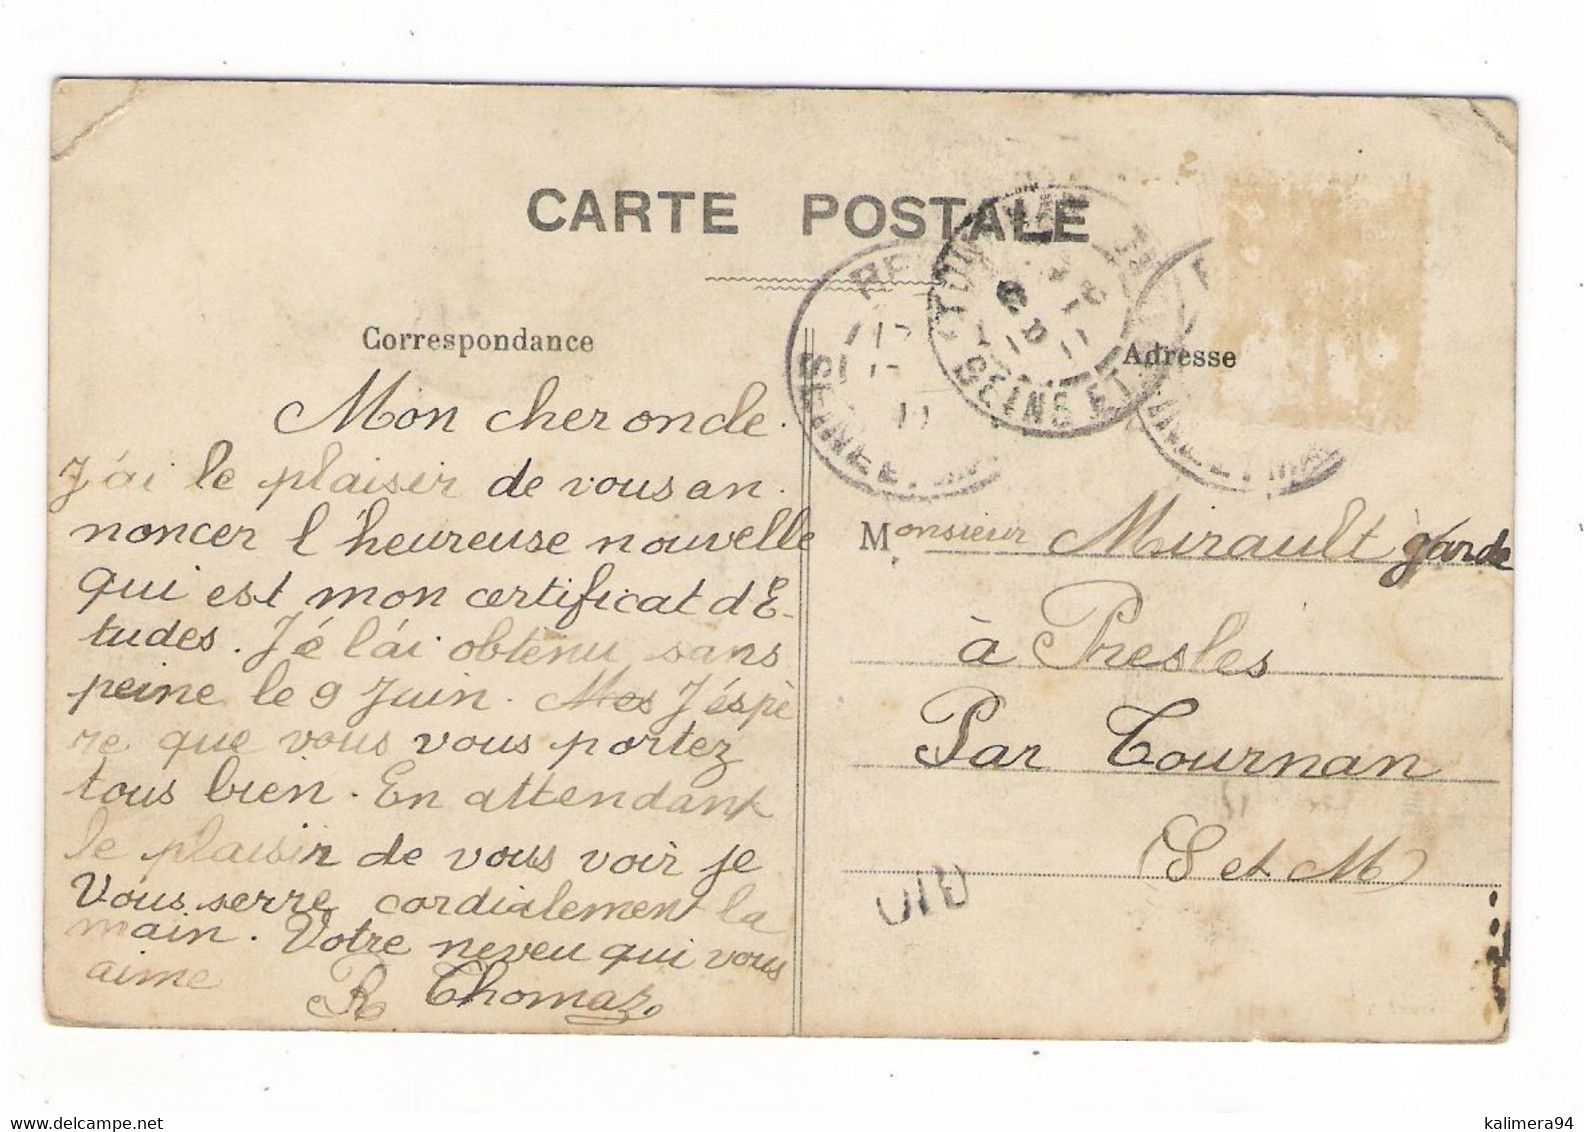 CARTE POSTALE
Correspondance
Mon cher oncle.
J'ai le plaisir de vous an.
noncer l'heureuse nouvelle
qui est mon certificat d'E-
tudes. Jé l'ai obtenu sans
peine le 9 Juin. Mes J'éspè
re que vous vous portez
tous bien. En attendant
le plaisir de vous voir je
Vous serre cordialement la
main. Votre neveu qui vous
aime
R Thomas.
Adresse
Monsieur Mirault garde
à Presles
Par Tournan
(S et M)
TOURNAN
SEINE ET
SEINE ET
11
kalimera94